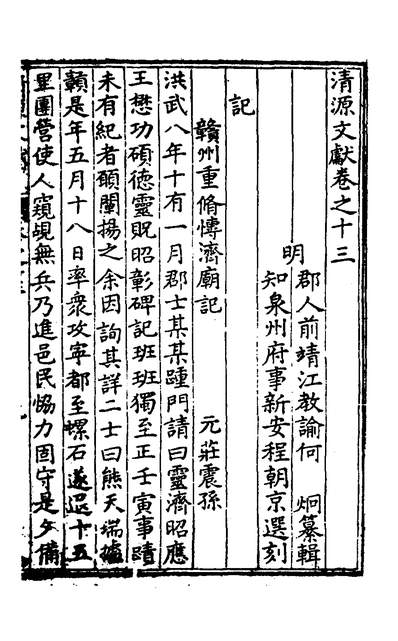 清源文獻卷之十三
明
郡人前靖江教諭何 炯纂輯
知泉州府事新安程朝京選刻
記
贛州重脩慱濟廟記 元莊震孫
洪武八年十有一月郡士某某踵門請曰靈濟昭應
王懋功碩德靈貺昭彰碑記班班獨至正壬寅事蹟
未有紀者願闡揚之余因詢其詳二士曰熊天瑞據
贛是年五月十八日率衆攻寧都至螺石遂退十五
里團營使人窺覘無兵乃進邑民恊力固守是夕備